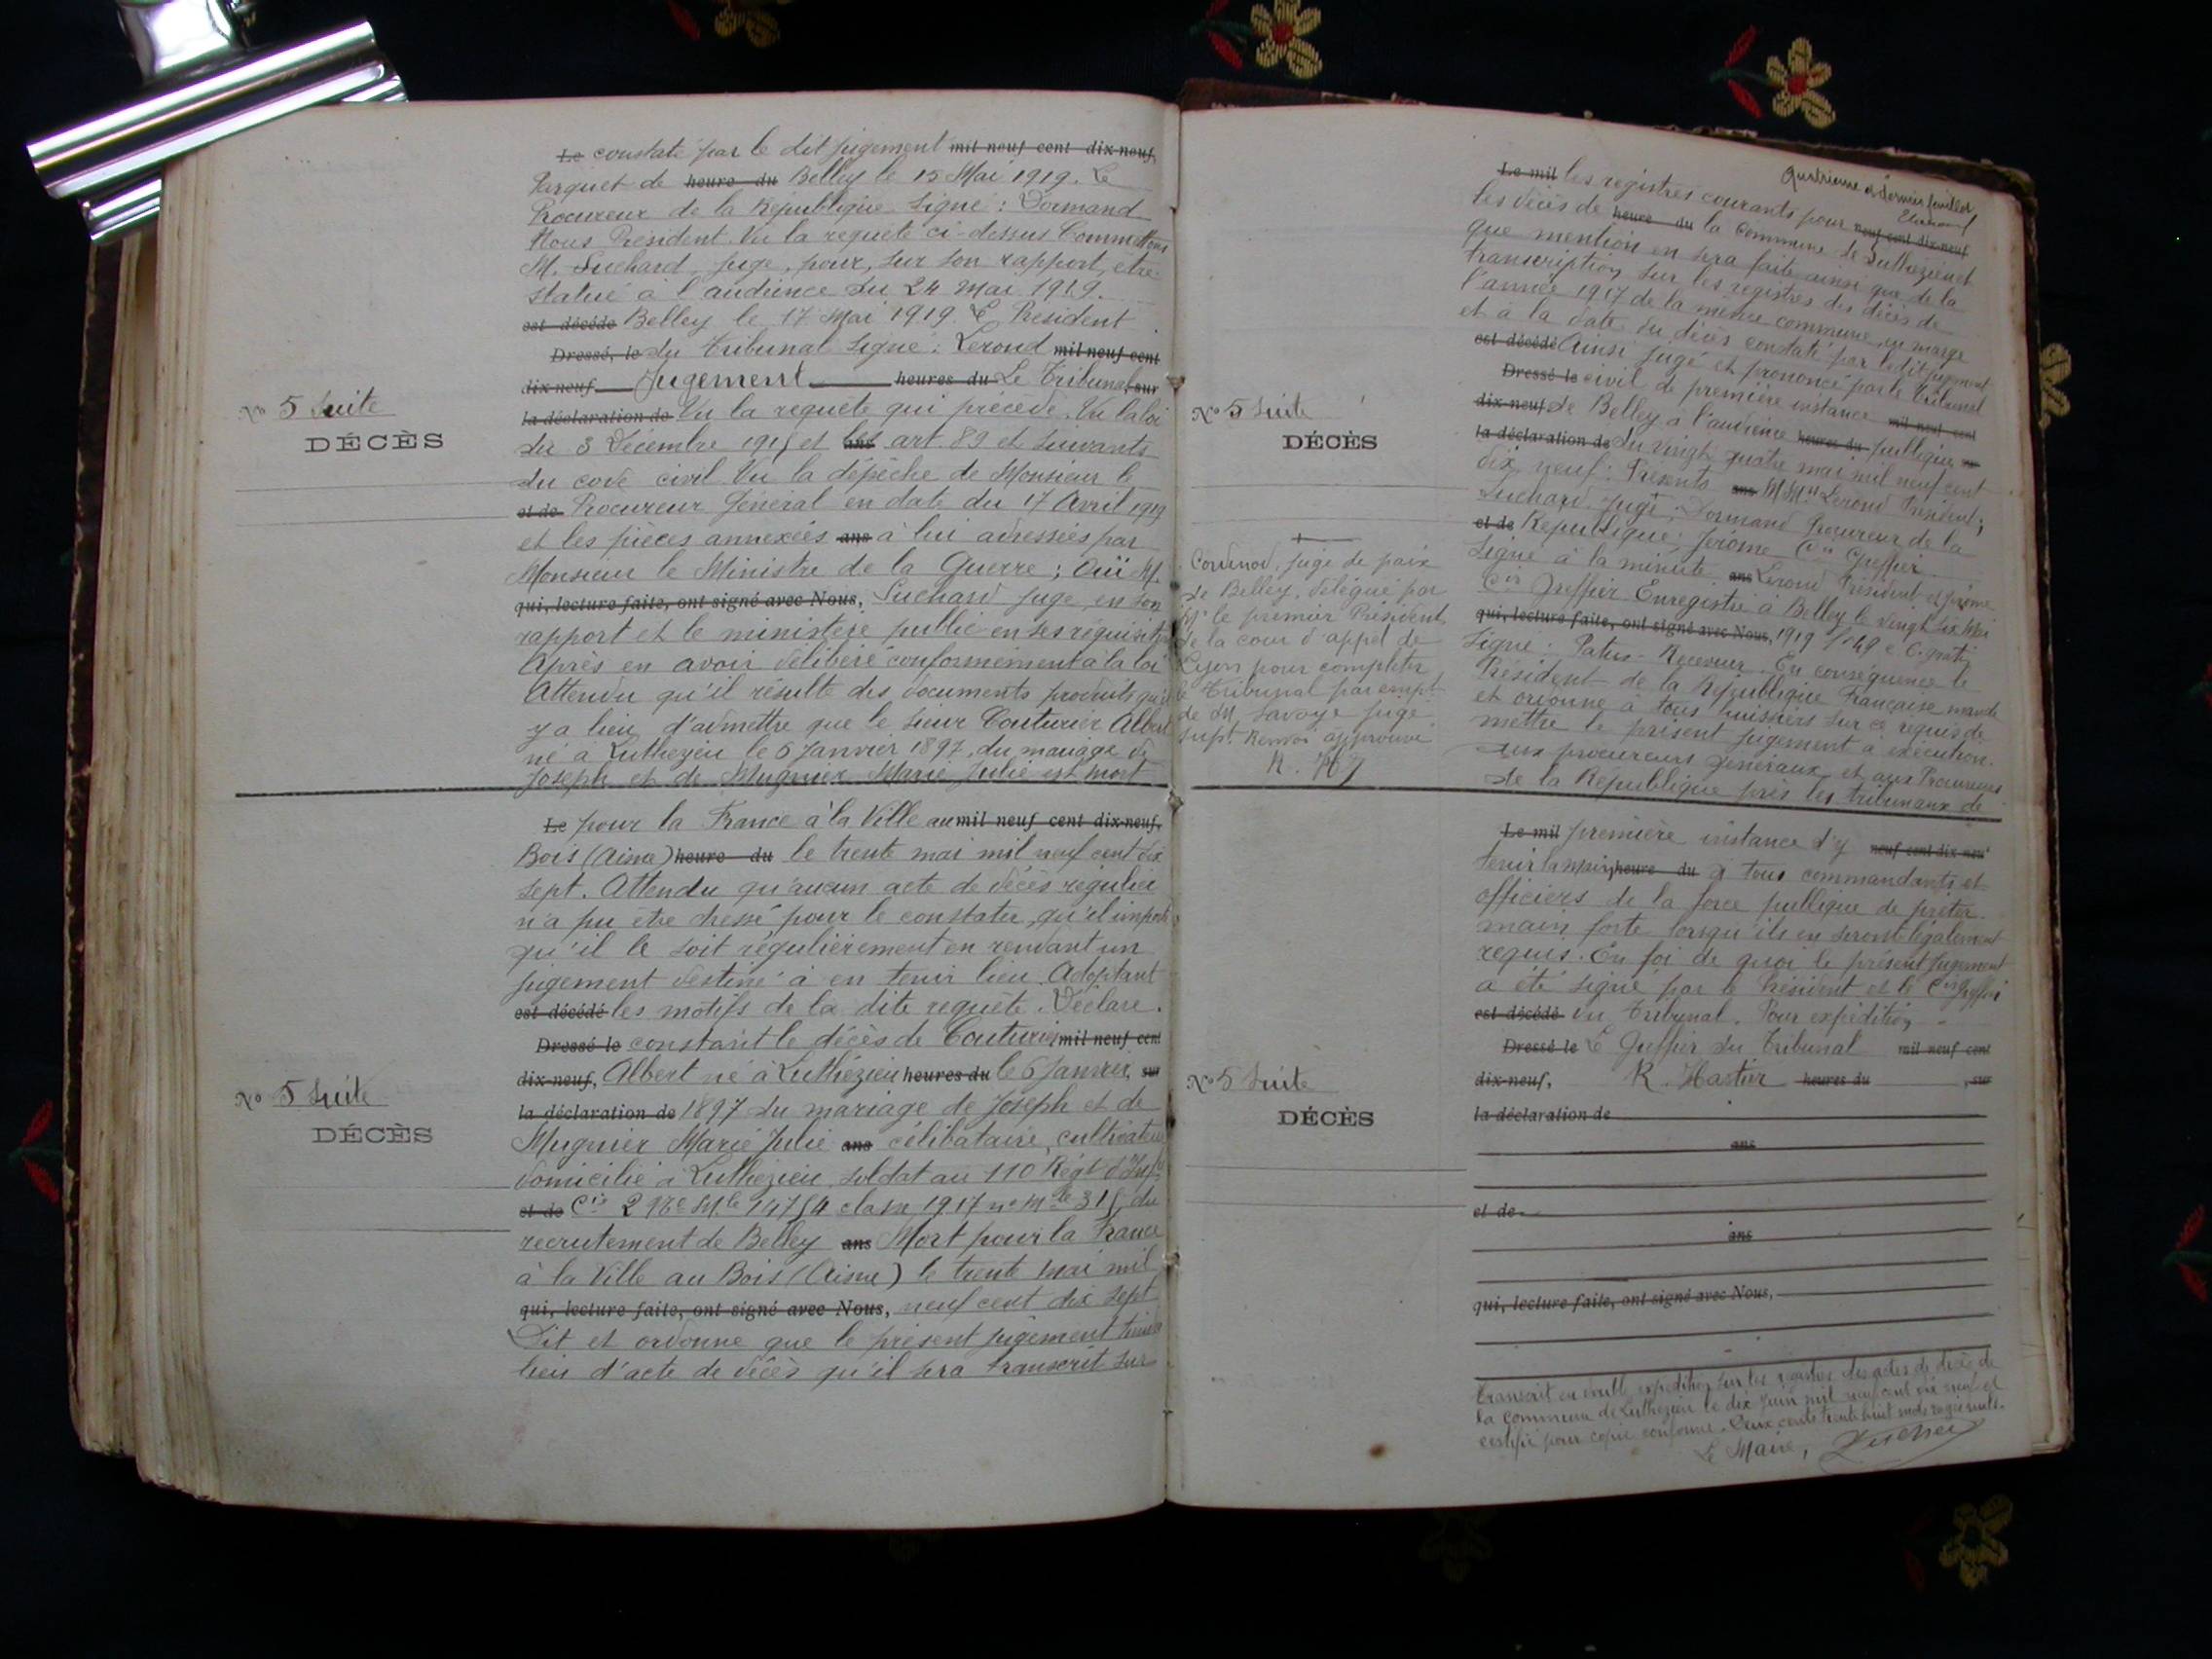 N° 5 Suite
DÉCÈS
Le constaté par le dit jugement mil neuf cent dix-neuf,
Parquet de heure du Belley le 15 Mai 1919. Le
Procureur de la République Signé : Dormand
Nous Président. Vu la requête ci-dessus Commettons
M. Suchard, juge, pour, sur son rapport, être
statué à l'audience du 24 mai 1919.
est décédé Belley le 17 Mai 1919. Le Président
Dressé, le du Tribunal Signé : Lerond mil neuf cent
dix-neuf Jugement heures du Le Tribunal, sur
la déclaration de Vu la requête qui précède. Vu la loi
du 3 Décembre 1915 et les ans art. 89 et suivants
du code civil Vu la dépêche de Monsieur le
et de Procureur Général en date du 17 Avril 1919
et les pièces annexées ans à lui adressées par
Monsieur le Ministre de la Guerre ; Ouï M.
qui, lecture faite, ont signé avec Nous, Suchard juge en son
rapport et le ministère public en ses réquisitions
Après en avoir délibéré conformément à la loi
Attendu qu'il résulte des documents produits qu'il
y a lieu d'admettre que le sieur Couturier Albert
né à Luthezieu le 6 Janvier 1897, du mariage de
Joseph et de Mugnier Marie Julie est mort
N° 5 Suite
DÉCÈS
Le pour la France à la Ville au mil neuf cent dix-neuf,
Bois (Aisne) heure du le trente mai mil neuf cent dix
sept. Attendu qu'aucun acte de décès régulier
n'a pu être dressé pour le constater, qu'il importe
qu'il le soit régulièrement en rendant un
jugement destiné à en tenir lieu. Adoptant
est décédé les motifs de la dite requête. Déclare
Dressé le constant le décès de Couturier mil neuf cent
dix-neuf, Albert né à Luthézieu heures du le 6 Janvier, sur
la déclaration de 1897 du mariage de Joseph et de
Mugnier Marie Julie ans célibataire, cultivateur
domicilié à Luthézieu, soldat au 110 Régt d'Infie
et de Cie 2 Mle 14754 classe 1917 n° mle 315 du
recrutement de Belley ans Mort pour la France
à la Ville au Bois (Aisne) le trente mai mil
qui, lecture faite, ont signé avec Nous, neuf cent dix sept
Dit et ordonne que le présent jugement tiendra
lieu d'acte de décès qu'il sera transcrit sur
Quatrième et dernier feuillet
N° 5 Suite
DÉCÈS
Cordnod, juge de paix
de Belley, délégué par
Mr le premier Président
de la cour d'appel de
Lyon pour compléter
le Tribunal par empt
de M Savoye juge
supt Renvoi approuvé
Le mil les registres courants pour neuf cent dix-neuf
les décès de heure du la Commune de Luthézieu et
que mention en sera faite ainsi que de la
transcription sur les registres des décès de
l'année 1917 de la même commune, en marge
et à la date du décès constaté par le dit jugement
est décédé Ainsi jugé et prononcé par le Tribunal
Dressé le civil de première instance mil neuf cent
dix-neuf, de Belley à l'audience heures du publique
la déclaration de du vingt quatre mai mil neuf cent
dix neuf : Présents ans MMrs Lerond Président ;
Suchard Juge ; Dormand Procureur de la
et de République ; Jérôme Cis Greffier
Signé à la minute ans Lerond Président et Jérôme
Cis Greffier Enregistré à Belley le vingt six Mai
qui, lecture faite, ont signé avec Nous, 1919 fo 49 c 6. gratis
Signé : Patus - Receveur. En conséquence le
Président de la République Française mande
et ordonne à tous huissiers sur ce requis de
mettre le présent jugement à exécution.
aux procureurs généraux et aux Procureurs
de la République près les tribunaux de
N° 5 Suite
DÉCÈS
Le mil première instance d'y neuf cent dix-neuf
tenir la main, heure du à tous commandants et
officiers de la force publique de prêter
main forte lorsqu'ils en seront légalement
requis. En foi de quoi le présent jugement
a été signé par le Président et le Cis Greffier
est décédé du Tribunal. Pour expédition
Dressé le Le Greffier du Tribunal mil neuf cent
dix-neuf, heures du , sur
la déclaration de
ans
et de
ans
qui, lecture faite, ont signé avec Nous,
Transcrit en double expédition sur les registres des actes de décès de
la commune de Luthézieu le dix Juin mil neuf cent dix neuf et
certifié pour copie conforme. Deux cents trente huit mots rayés nuls.
Le Maire,